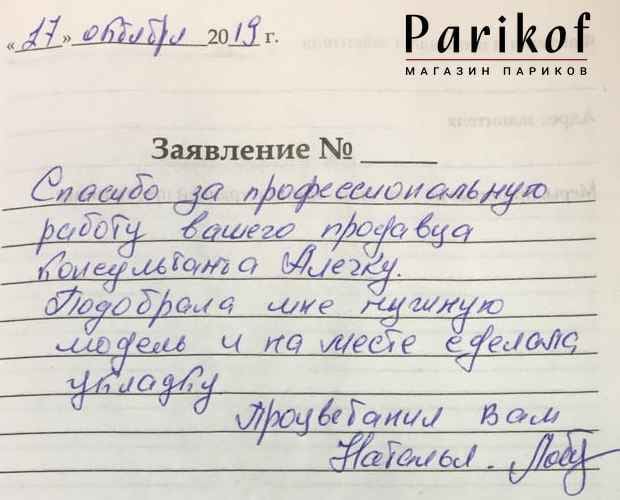 «27» октября 2019 г.
Parikof
МАГАЗИН ПАРИКОВ
Заявление №
Спасибо за профессиональную
работу вашего продавца
консультанта Алечку.
Подобрала мне нужную
модель и на месте сделала
укладку
Процветания Вам
Наталья.